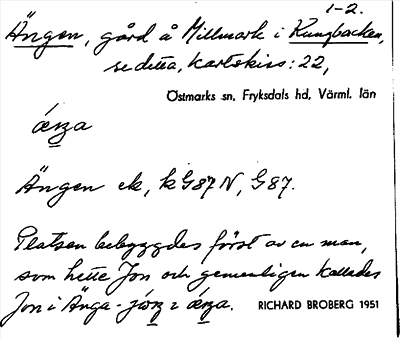 1-2.
Ängen, gård å Millmark i Kungbacken,
se detta, kartskiss: 22,
Östmarks sn, Fryksdals hd, Värml. län
Ängen ek, kG87N, G87.
Platsen bebyggdes först av en man,
som hette Jon och gemenligen kallades
Jon i Änga -
RICHARD BROBERG 1951